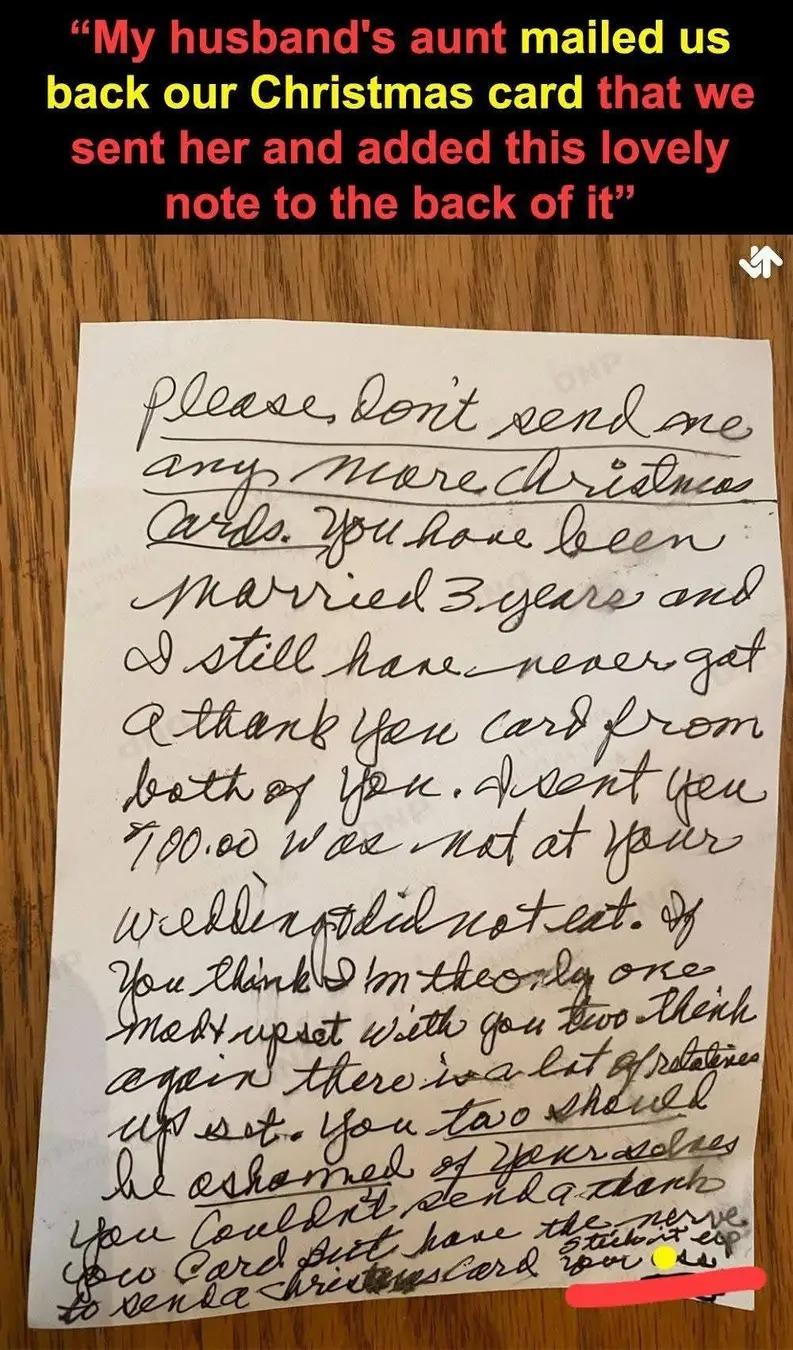 “My husband's aunt mailed us
back our Christmas card that we
sent her and added this lovely
note to the back of it”
Please Don't send me
any more Christmas
Cards. You have been
Married 3 years and
I still have never got
a thank you card from
both of you. I sent you
$100.00 was not at your
wedding & did not eat. If
You think I'm the only one
mad & upset with you two think
again there is a lot of relatives
up set. You two should
be ashamed of your selves
you couldn't send a thank
you Card but have the nerve
to send a christmas Card stick it up
your ass